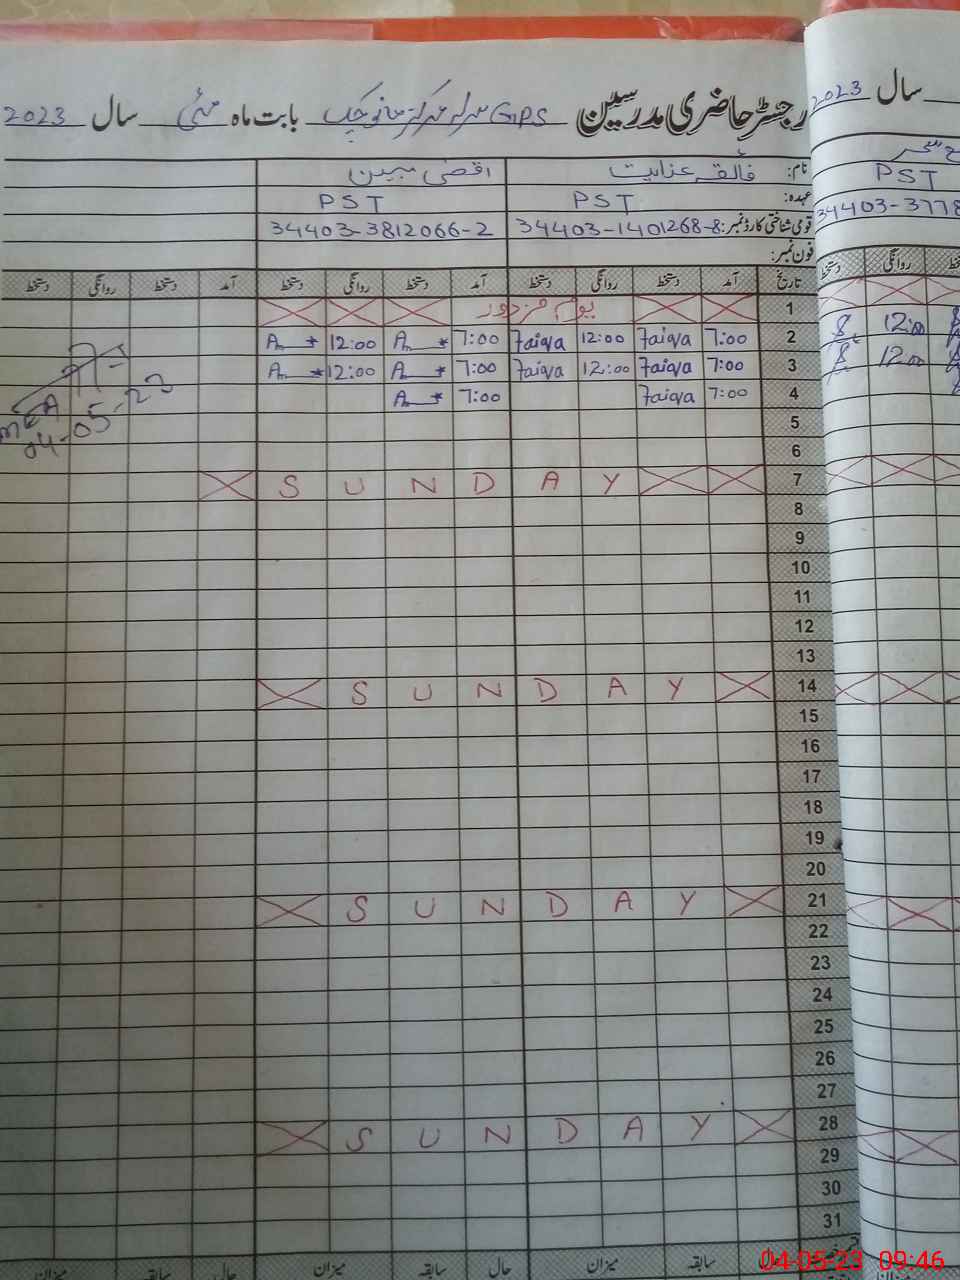 رجسٹر حاضری مدرسین GPS بابت ماہ مئی سال 2023
سال 2023
نام: فائقہ عنایت اقضیٰ مبین
عہدہ: PST PST PST
قومی شناختی کارڈ نمبر: 34403-1401268-8 34403-3812066-2 34403-3778
فون نمبر:
تاریخ آمد دستخط روانگی دستخط آمد دستخط روانگی دستخط آمد دستخط روانگی دستخط
روانگی دستخط
1 یوم مزدور
2 7:00 Faiqa 12:00 Faiqa 7:00 12:00
12:00
3 7:00 Faiqa 12:00 Faiqa 7:00 12:00
12:00
4 7:00 Faiqa 7:00
MEA
04-05-23
5
6
7 SUNDAY
8
9
10
11
12
13
14 SUNDAY
15
16
17
18
19
20
21 SUNDAY
22
23
24
25
26
27
28 SUNDAY
29
30
31
سابقہ میزان حال سابقہ میزان حال سابقہ میزان
04-05-23 09:46